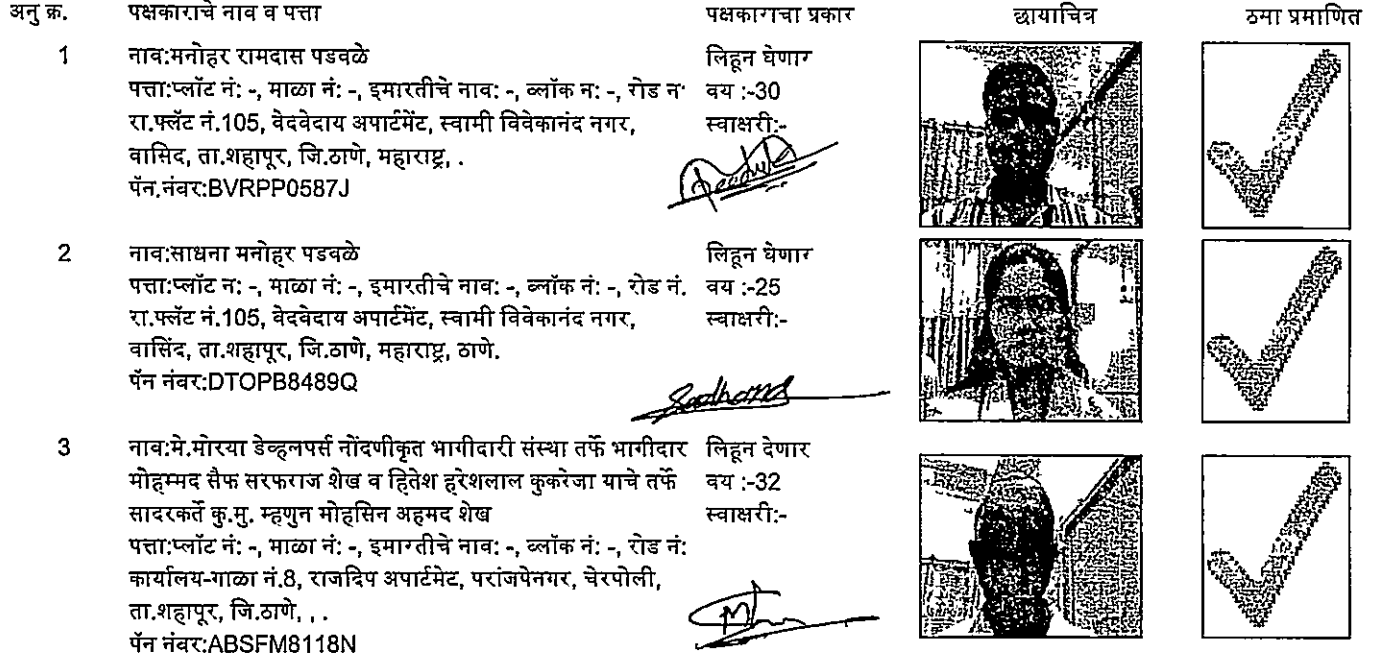 अनु क्र. पक्षकाराचे नाव व पत्ता पक्षकाराचा प्रकार छायाचित्र ठसा प्रमाणित
1 नाव:मनोहर रामदास पडवळे लिहून घेणार
पत्ता:प्लॉट नं: -, माळा नं: -, इमारतीचे नाव: -, ब्लॉक न: -, रोड न वय :-30
रा.फ्लॅट नं.105, वेदवेदाय अपार्टमेंट, स्वामी विवेकानंद नगर, स्वाक्षरी:-
वासिद, ता.शहापूर, जि.ठाणे, महाराष्ट्र, .
पॅन.नंबर:BVRPP0587J
2 नाव:साधना मनोहर पडवळे लिहून घेणार
पत्ता:प्लॉट न: -, माळा नं: -, इमारतीचे नाव: -, ब्लॉक नं: -, रोड नं. वय :-25
रा.फ्लॅट नं.105, वेदवेदाय अपार्टमेंट, स्वामी विवेकानंद नगर, स्वाक्षरी:-
वासिंद, ता.शहापूर, जि.ठाणे, महाराष्ट्र, ठाणे.
पॅन नंबर:DTOPB8489Q
Sadhana
3 नाव:मे.मोरया डेव्हलपर्स नोंदणीकृत भागीदारी संस्था तर्फे भागीदार लिहून देणार
मोहम्मद सैफ सरफराज शेख व हितेश हरेशलाल कुकरेजा याचे तर्फे वय :-32
सादरकर्ते कु.मु. म्हणुन मोहसिन अहमद शेख स्वाक्षरी:-
पत्ता:प्लॉट नं: -, माळा नं: -, इमारतीचे नाव: -, ब्लॉक नं: -, रोड नं:
कार्यालय-गाळा नं.8, राजदिप अपार्टमेट, परांजपेनगर, चेरपोली,
ता.शहापूर, जि.ठाणे, , .
पॅन नंबर:ABSFM8118N